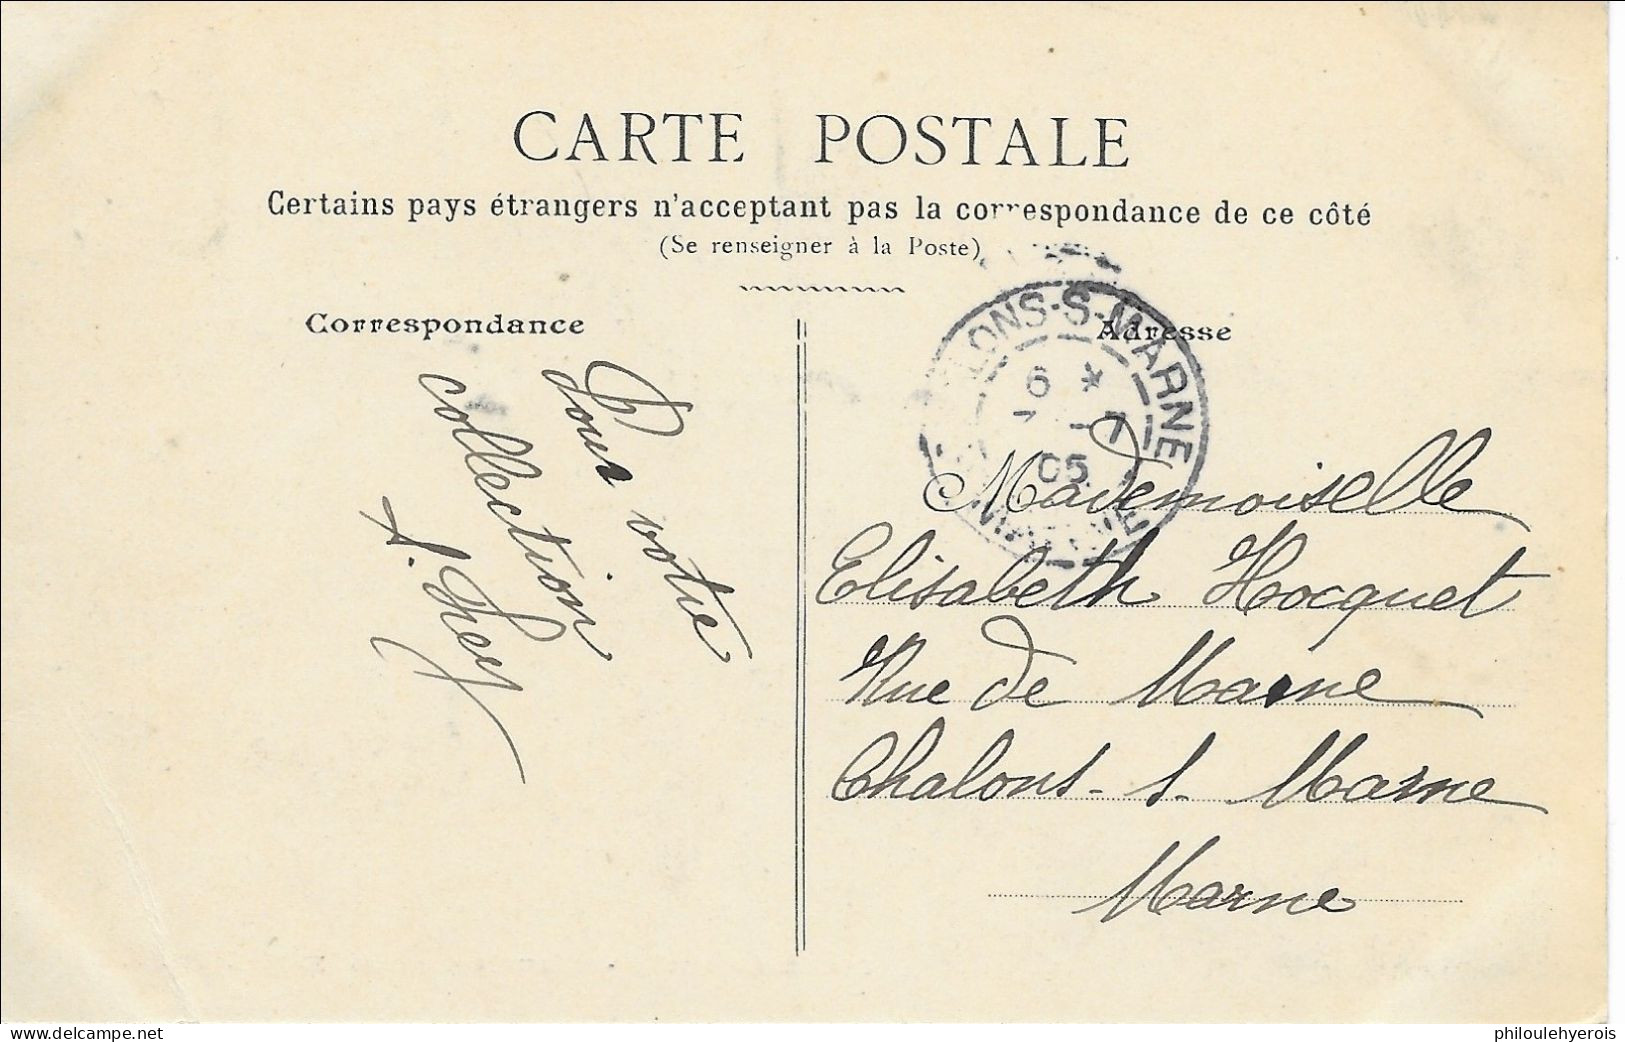 CARTE POSTALE
Certains pays étrangers n'acceptant pas la correspondance de ce côté
(Se renseigner à la Poste)
Correspondance
Adresse
Pour votre
collection
LONS-S-MARNE
6 *
-7
05
Mademoiselle
Elisabeth Hocquet
Rue de Marne
Chalons-s-Marne
Marne
www.delcampe.net
philoulehyerois